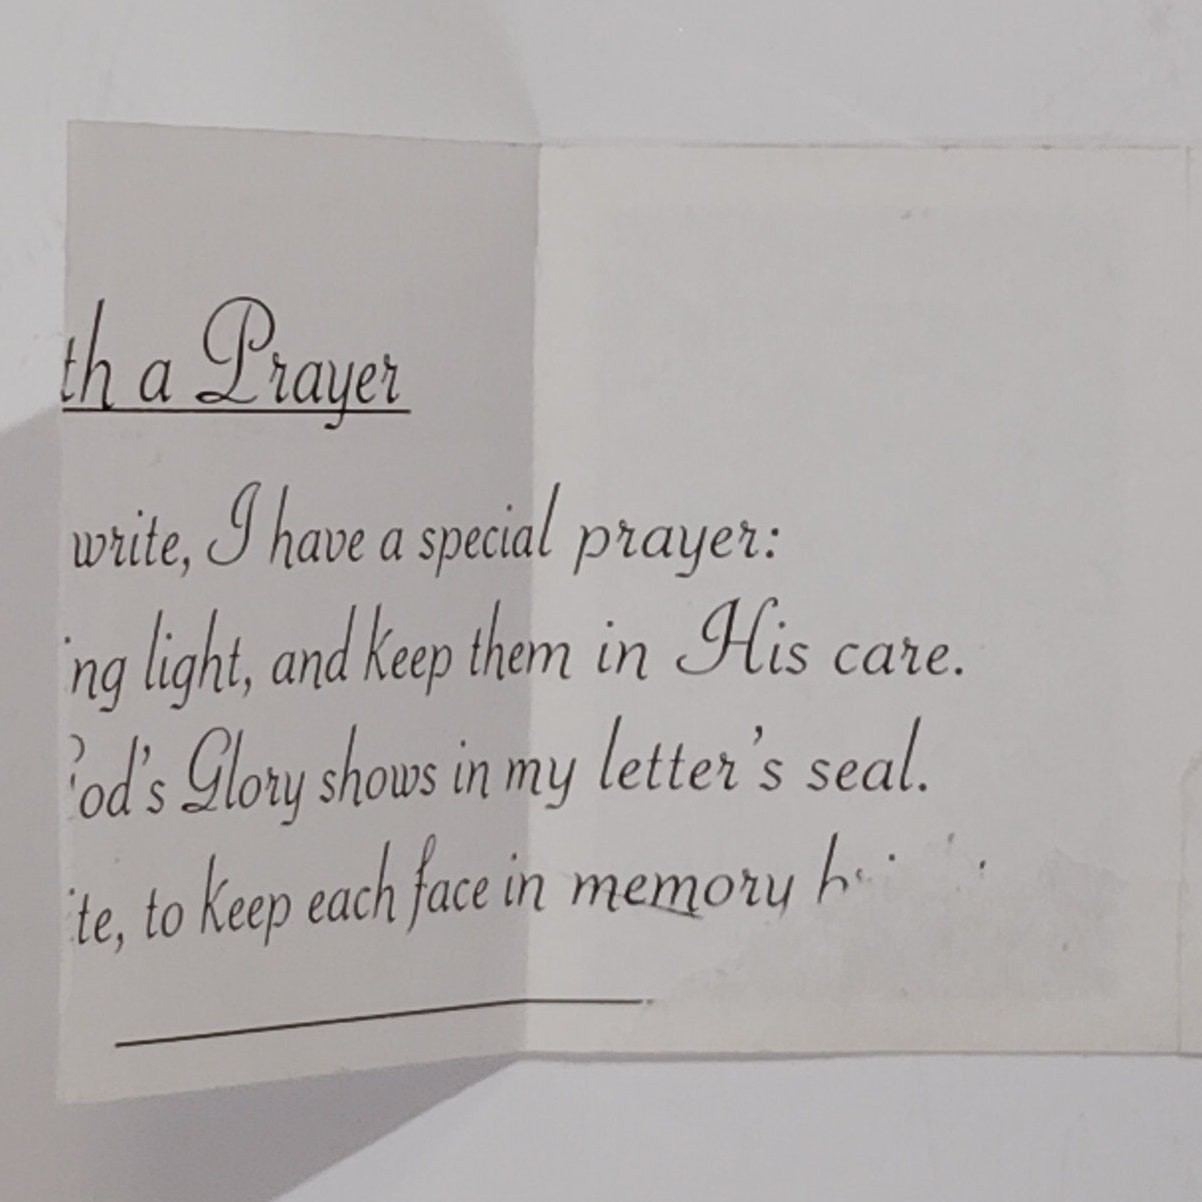 th a Prayer
write, I have a special prayer:
ng light, and keep them in His care.
od's Glory shows in my letter's seal.
te, to keep each face in memory